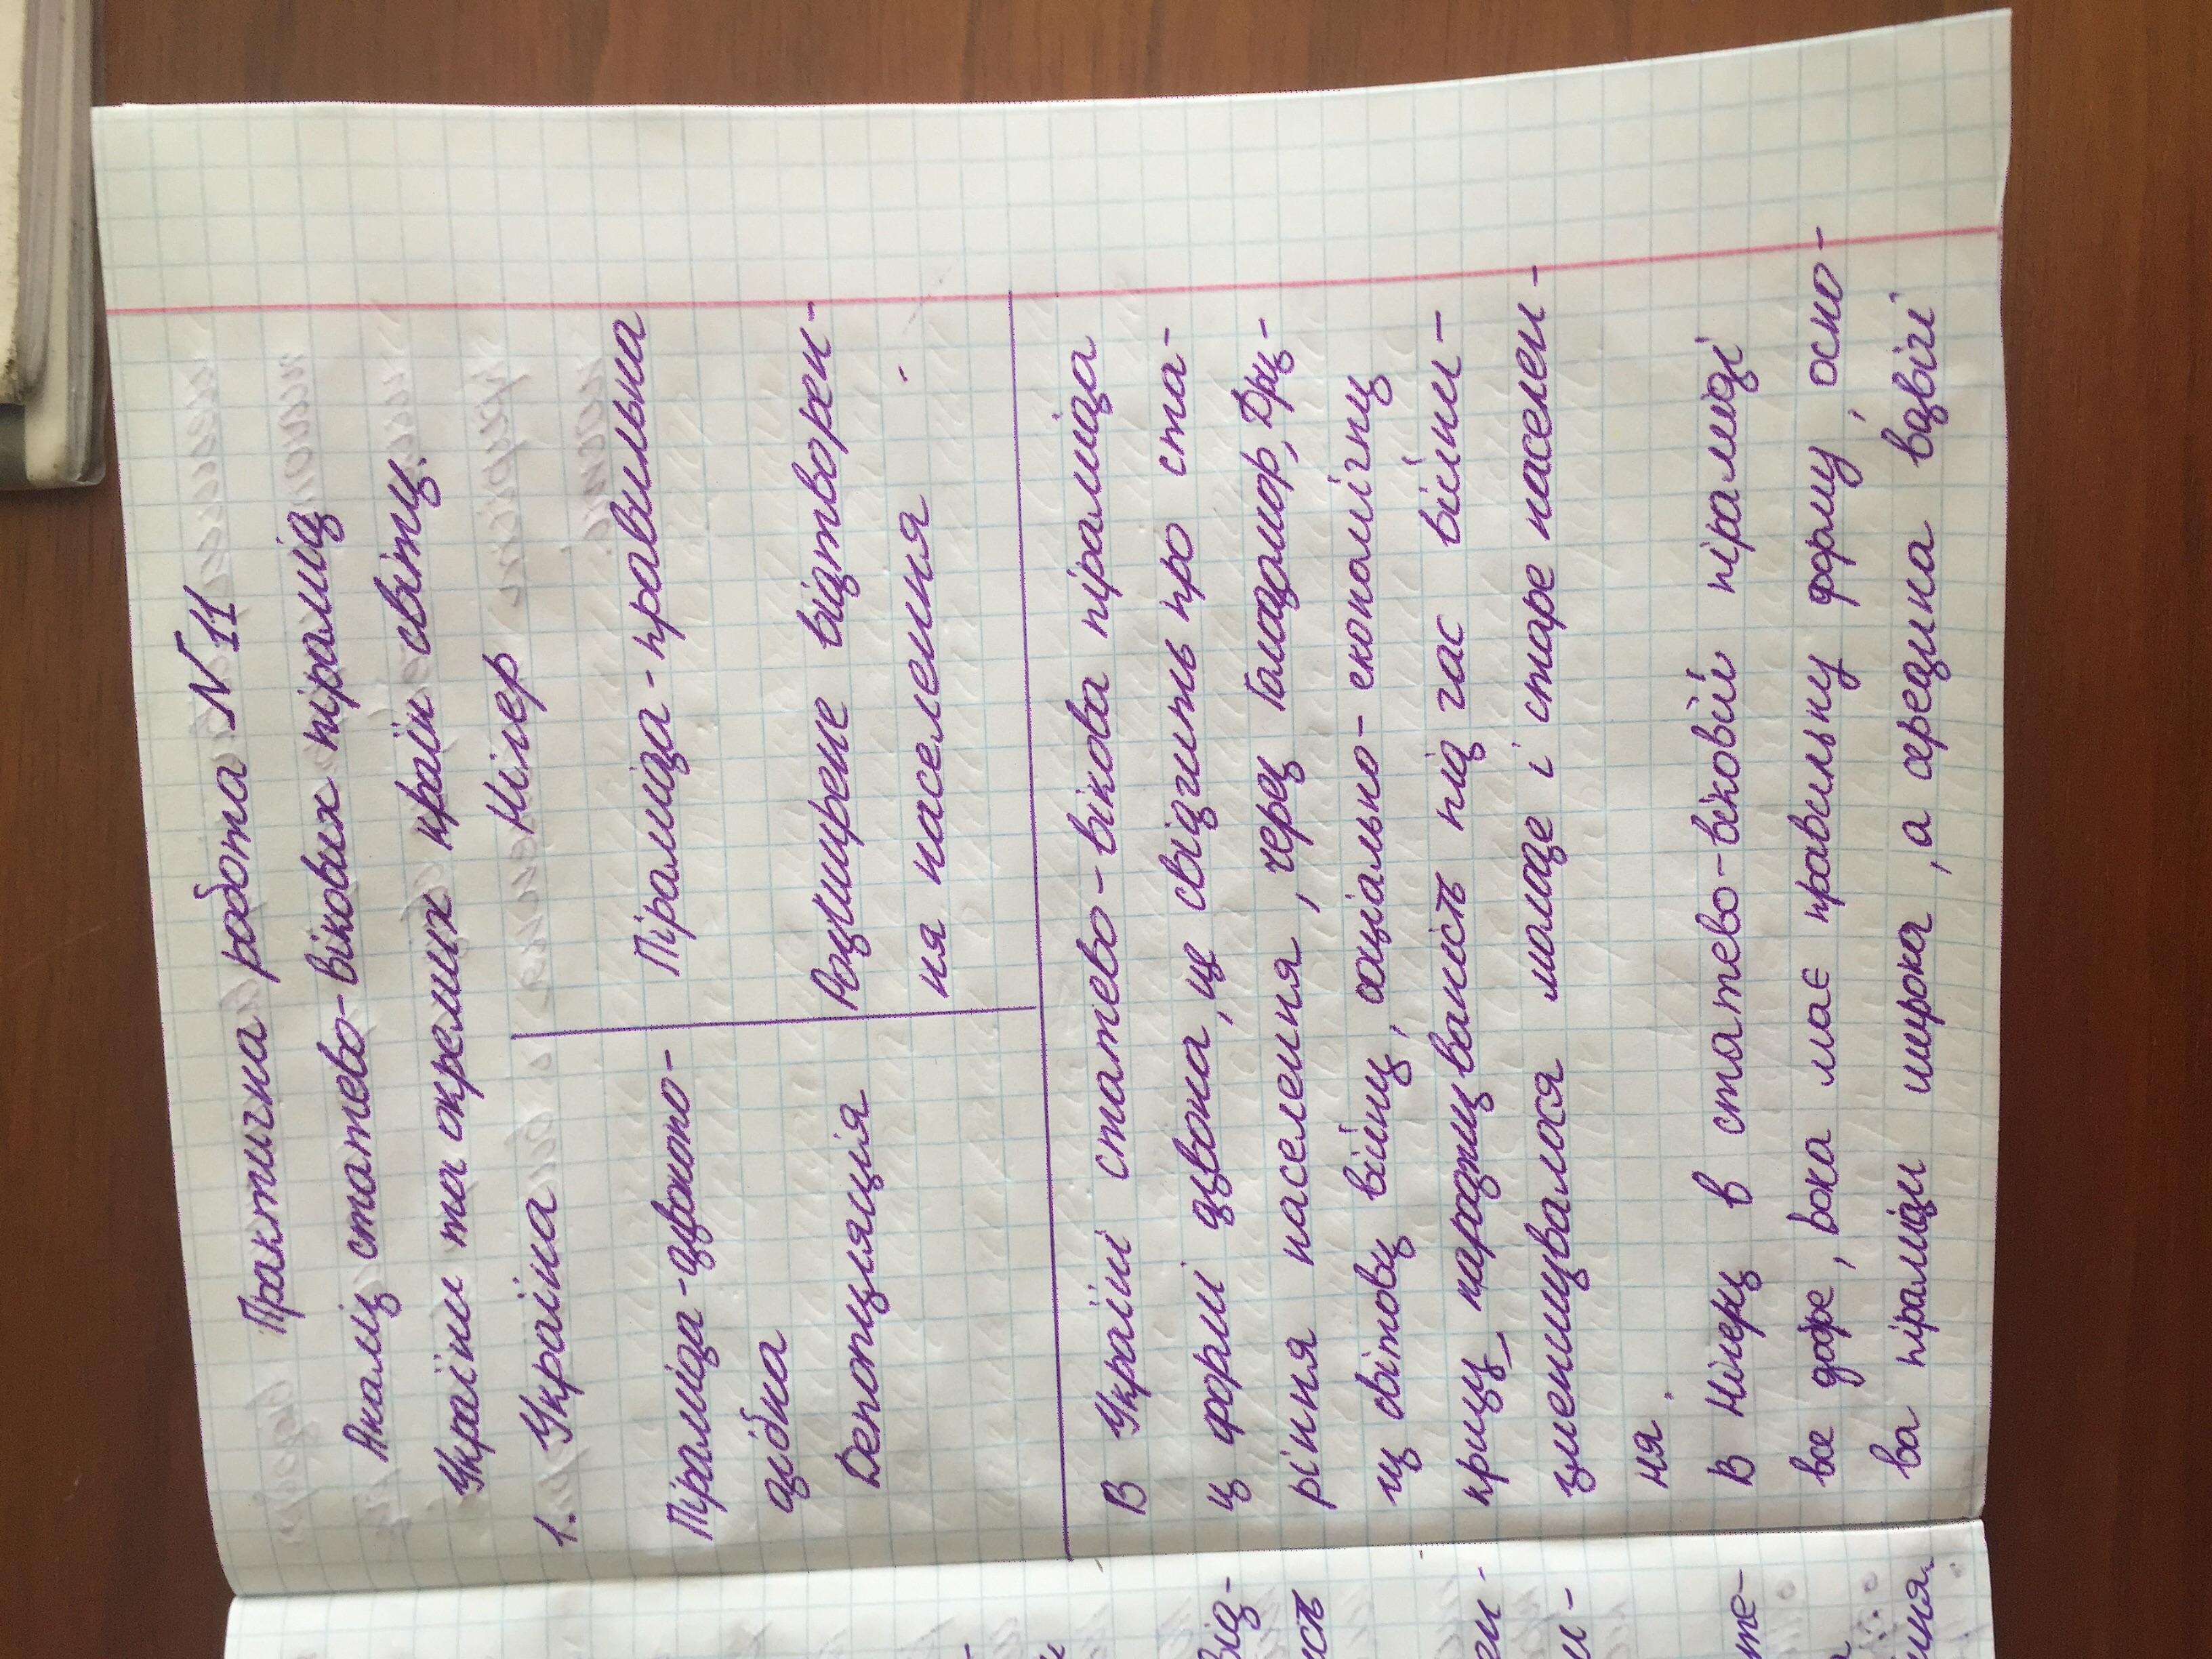 Практична робота №11
Аналіз статево-вікових пірамід
України та окремих країн світу.
1. Україна
Нігер
Піраміда-дзвоно-
дібна
Депопуляція
Піраміда-правильна
Розширене відтворен-
ня населення
В Україні статево-вікова піраміда
у формі дзвона, це свідчить про ста-
ріння населення, через Голодомор, Дру-
гу світову війну, соціально-економічну
кризу_ народжуваність під час війни-
зменшувалося молоде і старе населен-
ня.
В Нігеру в статево-віковій піраміді
все добре, вона має правильну форму, осно-
ва піраміди широка, а середина вдвічі
від-
ність
ген-
и-
те-
ння.